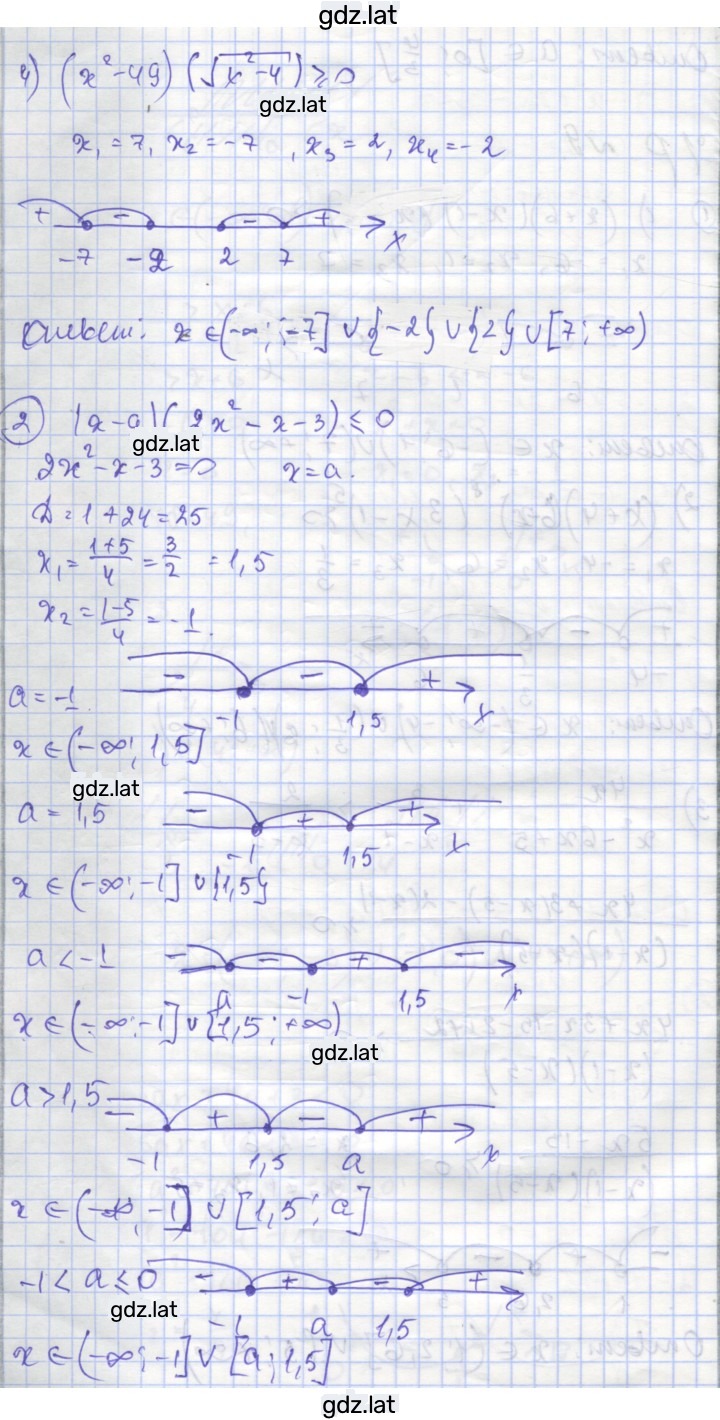 gdz.lat
4) (x²-49)(√x²-4) ≥ 0
gdz.lat
x₁ = 7, x₂ = -7, x₃ = 2, x₄ = -2
+ - - +
-7 -2 2 7 x
Ответ: x ∈ (-∞; -7] ∪ {-2} ∪ {2} ∪ [7; +∞)
2 (x-a)(2x²-x-3) ≤ 0
gdz.lat
2x²-x-3=0 x=a.
D = 1+24=25
x₁ = (1+5)/4 = 3/2 = 1,5
x₂ = (1-5)/4 = -1.
- - +
a = -1
-1 1,5 x
x ∈ (-∞; 1,5]
gdz.lat
a = 1,5 - + +
-1 1,5 x
x ∈ (-∞; -1] ∪ {1,5}
a < -1 - - + -
a -1 1,5 x
x ∈ (-∞; -1] ∪ [1,5; +∞)
gdz.lat
a > 1,5 - + - +
-1 1,5 a x
x ∈ (-∞, -1] ∪ [1,5; a]
-1 < a ≤ 0 - + - +
gdz.lat
-1 a 1,5
x ∈ (-∞; -1] ∪ [a; 1,5]
gdz.lat